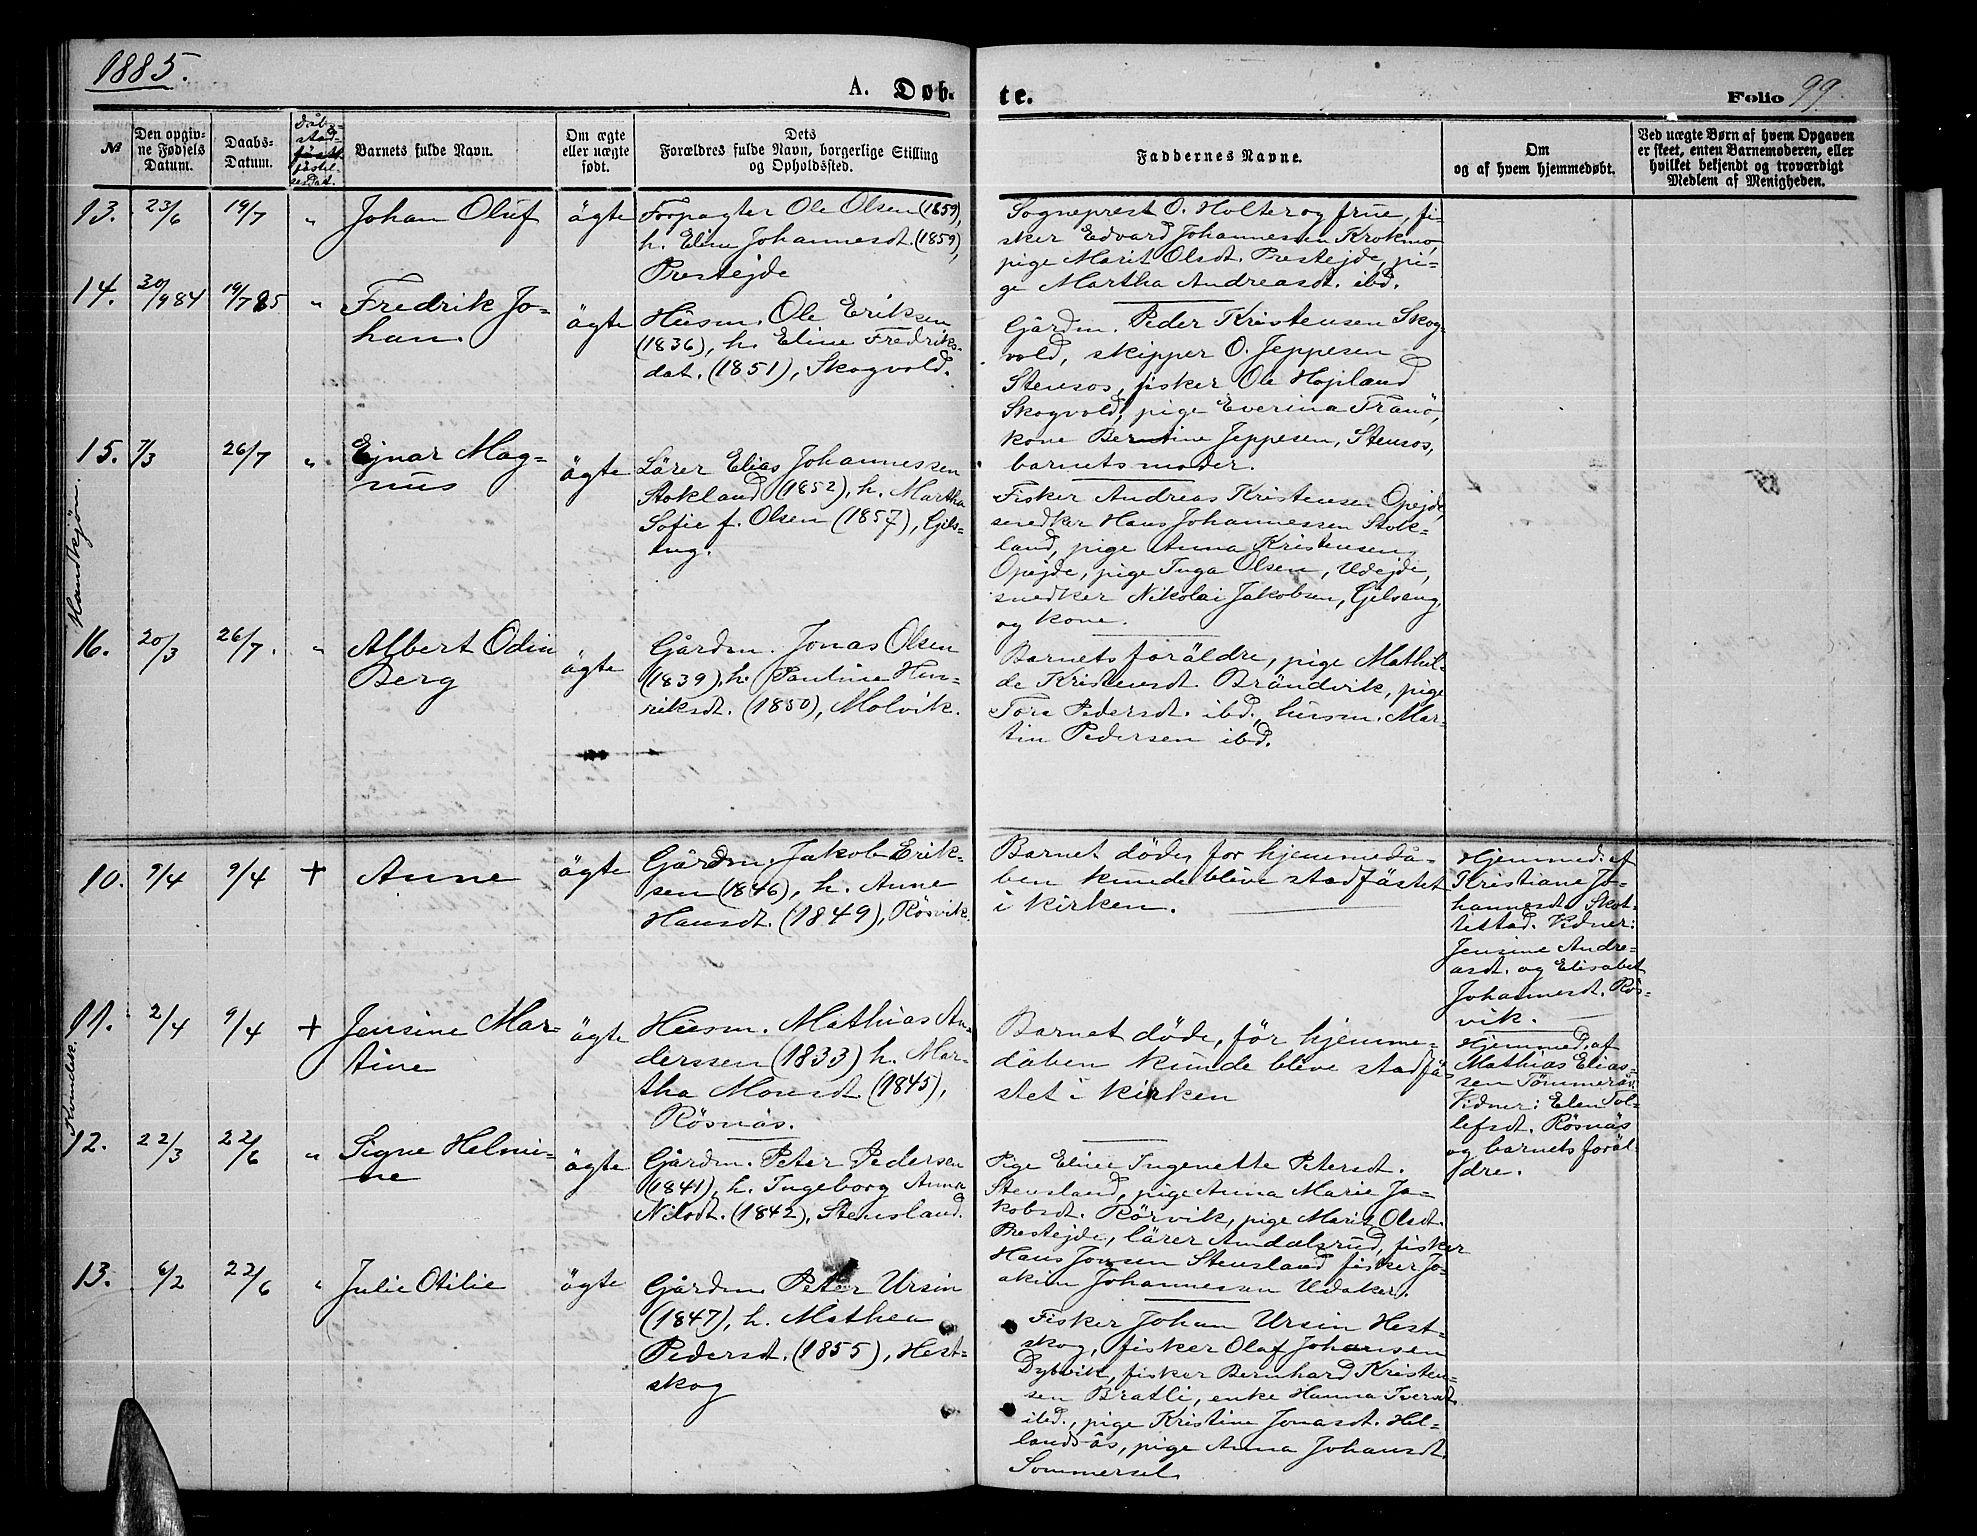 1885.
A. Døb-
te.
Folio 99.
№
Den opgiv-
ne Fødsels
Datum.
Daabs-
Datum.
Barnets fulde Navn.
Om ægte
eller uægte
født.
Dets
Forældres fulde Navn, borgerlige Stilling
og Opholdssted.
Faddernes Navne.
Om
og af hvem hjemmedøbt.
Ved uægte Børn af hvem Opgaven
er skeet, enten Barnemoderen, eller
hvilket bekjendt og troværdigt
Medlem af Menigheden.
Handkjøn.
13.
23/6
19/7
"
Johan Oluf
ägte
Forpagter Ole Olsen (1859),
h. Eline Johannesdt. (1859),
Prestejde
Sogneprest O. Holter og frue, fi-
sker Edvard Johannessen Krokmo,
pige Marit Olsdt. Prestejde, pi-
ge Martha Andreasdt. ibd.
14.
30/9 84
19/7 85
"
Fredrik Jo-
han.
ägte
Husm. Ole Eriksen
(1836), h. Eline Fredriks-
dat. (1851), Skogvold.
Gårdm. Peder Kristensen Skog-
vold, skipper O. Jeppesen
Stensos, fisker Ole Hojland
Skogvold, pige Everina Tranö,
kone Berntine Jeppesen, Stensos,
barnets moder.
15.
7/3
26/7
"
Ejnar Mag-
nus
ägte
Lärer Elias Johannessen
Stokland (1852), h. Martha
Sofie f. Olsen (1857), Gils-
eng.
Fisker Andreas Kristensen Opejde,
snedker Hans Johannessen Stok-
land, pige Anna Kristensen,
Opejde, pige Inga Olsen, Udejde,
snedker Nikolai Jakobsen, Gilseng,
og kone.
16.
20/3
26/7.
"
Albert Odin
Berg
ägte
Gårdm. Jonas Olsen
(1839), h. Pauline Hen-
riksdt. (1850), Molvik.
Barnets foräldre, pige Mathil-
de Kristensdt. Brändvik, pige
Tora Pedersdt. ibd., husm. Mar-
tin Pedersen ibd.
Kvindek.
10.
9/4
9/4
+
Anne
ägte
Gårdm. Jakob Erik-
sen (1846), h. Anne
Hansdt. (1849), Rösvik.
Barnet döde, for hjemmedå-
ben kunde blive stadfästet
i kirken.
Hjemmed. af
Kristiane Jo-
hannesdt. Skot-
testad. Vidner:
Jensine Andre-
asdt. og Elisabet
Johannesdt. Rös-
vik.
11.
2/4
9/4
+
Jensine Mar-
tine
ägte
Husm. Mathias An-
derssen (1833) h. Mar-
tha Monsdt. (1845),
Rösnäs.
Barnet döde, för hjemme-
dåben kunde blive stadfä-
stet i kirken
Hjemmed. af
Mathias Elias-
sen Tömmerås.
Vidner: Elen Tol-
lefsdt. Rösnäs
og barnets foräl-
dre.
12.
22/3
22/6
"
Signe Helmi-
ne
ägte
Gårdm. Peter Pedersen
(1841), h. Ingeborg Anna
Nilsdt. (1842), Stensland.
Pige Eline Ingenette Petersdt.
Stensland, pige Anna Marie Ja-
kobsdt. Rörvik, pige Marit Olsdt.
Prestejde, lärer Amdalsrud, fisker
Hans Jonsen Stensland fisker Jo-
akim Johannesen Udaker.
13.
6/2
22/6
"
Julie Otilie
ägte
Gårdm. Peter Ursin
(1847), h. Mathea
Pedersdt. (1855), Hest-
skog
Fisker Johan Ursin Hest-
skog, fisker Olaf Johansen
Dybvik, fisker Bernhard Kristen-
sen Bratli, enke Hanna Iversdt.
ibd., pige Kristine Jonasdt. Hel-
landsås, pige Anna Johansdt.
Sommersel.